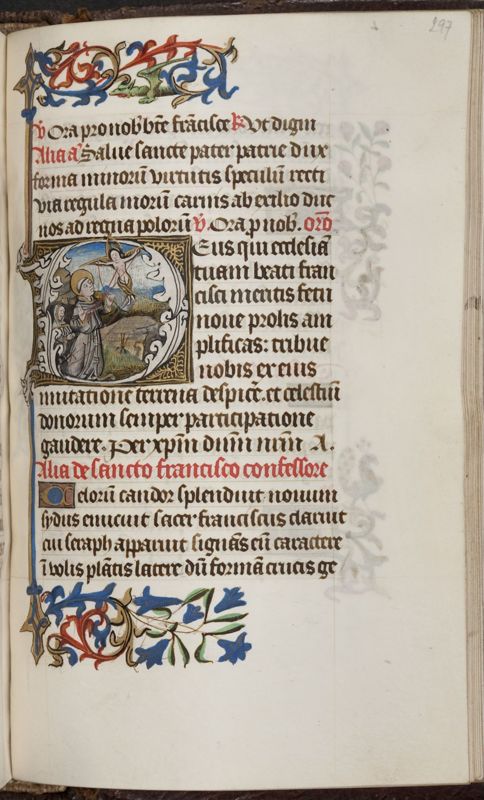 297
V Ora pro nob bt̄e frācisce R Vt digni
Alia aᵃ Salue sancte pater patrie dux
forma minorū virtutis speculū recti
via regula morū carnis ab exilio duc
nos ad regna polorū V Ora p nob. orō
Deus qui ecclesiā
tuam beati fran
cisci meritis fetu
noue prolis am
plificas: tribue
nobis ex eius
imitatione terrena despicē. et celestiū
donorum semper participatione
gaudere. Per xp̄m dūm nr̄m A.
Alia de sancto francisco confessore
Celorū candor splenduit nouum
sydus emicuit sacer franciscus claruit
cui seraph apparuit signās eū caractere
ī volis plātis latere dū formā crucis ge